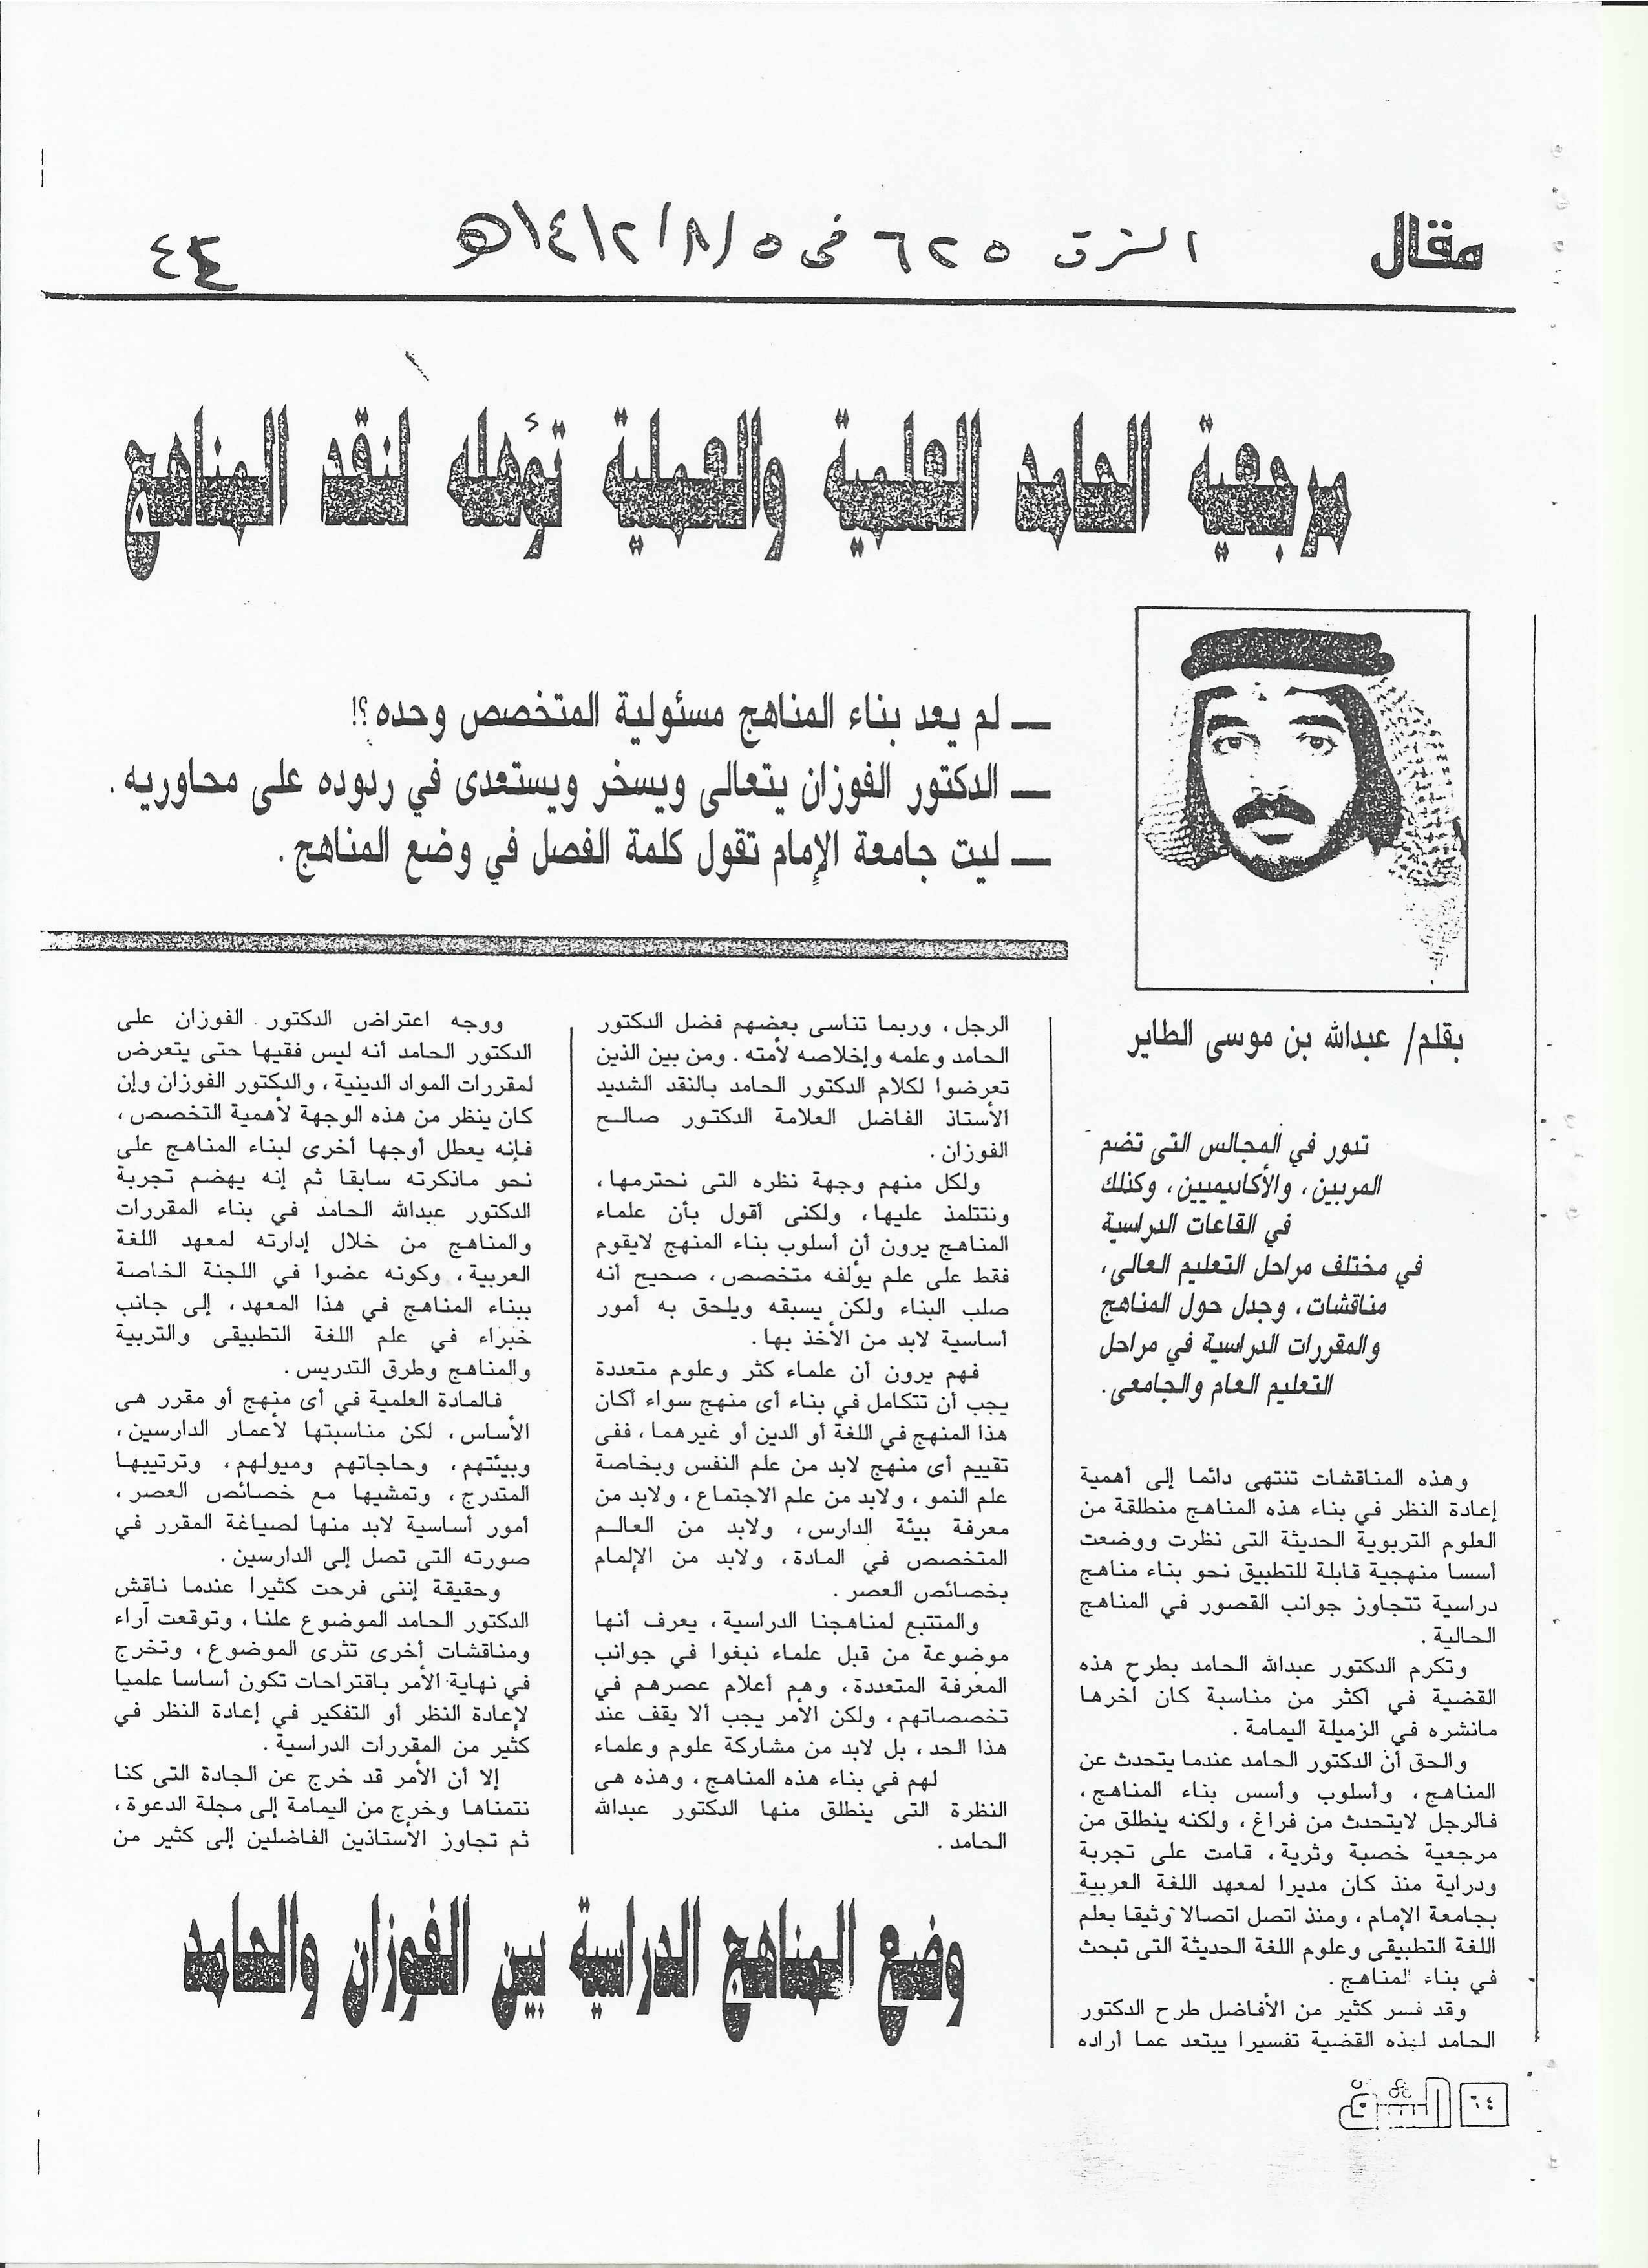 مقال
الشرق ٦٢٥ في ١٤١٢/٨/٥هـ
٤٤
مرجعية الحامد العلمية والعملية تؤهله لنقد المناهج
— لم يعد بناء المناهج مسئولية المتخصص وحده ؟!
— الدكتور الفوزان يتعالى ويسخر ويستعدى في ردوده على محاوريه .
— ليت جامعة الإمام تقول كلمة الفصل في وضع المناهج .
بقلم/ عبدالله بن موسى الطاير
تدور في المجالس التى تضم
المربين، والأكاديميين، وكذلك
في القاعات الدراسية
في مختلف مراحل التعليم العالى،
مناقشات، وجدل حول المناهج
والمقررات الدراسية في مراحل
التعليم العام والجامعى.
وهذه المناقشات تنتهى دائما إلى أهمية
إعادة النظر في بناء هذه المناهج منطلقة من
العلوم التربوية الحديثة التى نظرت ووضعت
أسسا منهجية قابلة للتطبيق نحو بناء مناهج
دراسية تتجاوز جوانب القصور في المناهج
الحالية .
وتكرم الدكتور عبدالله الحامد بطرح هذه
القضية في أكثر من مناسبة كان آخرها
مانشره في الزميلة اليمامة .
والحق أن الدكتور الحامد عندما يتحدث عن
المناهج، وأسلوب وأسس بناء المناهج،
فالرجل لايتحدث من فراغ، ولكنه ينطلق من
مرجعية خصبة وثرية، قامت على تجربة
ودراية منذ كان مديرا لمعهد اللغة العربية
بجامعة الإمام، ومنذ اتصل اتصالا وثيقا بعلم
اللغة التطبيقى وعلوم اللغة الحديثة التى تبحث
في بناء المناهج .
وقد فسر كثير من الأفاضل طرح الدكتور
الحامد لهذه القضية تفسيرا يبتعد عما أراده
الرجل، وربما تناسى بعضهم فضل الدكتور
الحامد وعلمه وإخلاصه لأمته . ومن بين الذين
تعرضوا لكلام الدكتور الحامد بالنقد الشديد
الأستاذ الفاضل العلامة الدكتور صالح
الفوزان .
ولكل منهم وجهة نظره التى نحترمها،
ونتتلمذ عليها، ولكنى أقول بأن علماء
المناهج يرون أن أسلوب بناء المنهج لايقوم
فقط على علم يؤلفه متخصص، صحيح أنه
صلب البناء ولكن يسبقه ويلحق به أمور
أساسية لابد من الأخذ بها.
فهم يرون أن علماء كثر وعلوم متعددة
يجب أن تتكامل في بناء أى منهج سواء أكان
هذا المنهج في اللغة أو الدين أو غيرهما، ففى
تقييم أى منهج لابد من علم النفس وبخاصة
علم النمو، ولابد من علم الاجتماع، ولابد من
معرفة بيئة الدارس، ولابد من العالم
المتخصص في المادة، ولابد من الإلمام
بخصائص العصر .
والمتتبع لمناهجنا الدراسية، يعرف أنها
موضوعة من قبل علماء نبغوا في جوانب
المعرفة المتعددة، وهم أعلام عصرهم في
تخصصاتهم، ولكن الأمر يجب ألا يقف عند
هذا الحد، بل لابد من مشاركة علوم وعلماء
لهم في بناء هذه المناهج، وهذه هى
النظرة التى ينطلق منها الدكتور عبدالله
الحامد .
ووجه اعتراض الدكتور الفوزان على
الدكتور الحامد أنه ليس فقيها حتى يتعرض
لمقررات المواد الدينية، والدكتور الفوزان وإن
كان ينظر من هذه الوجهة لأهمية التخصص،
فإنه يعطل أوجها أخرى لبناء المناهج على
نحو ماذكرته سابقا ثم إنه يهضم تجربة
الدكتور عبدالله الحامد في بناء المقررات
والمناهج من خلال إدارته لمعهد اللغة
العربية، وكونه عضوا في اللجنة الخاصة
ببناء المناهج في هذا المعهد، إلى جانب
خبراء في علم اللغة التطبيقى والتربية
والمناهج وطرق التدريس .
فالمادة العلمية في أى منهج أو مقرر هى
الأساس، لكن مناسبتها لأعمار الدارسين،
وبيئتهم، وحاجاتهم وميولهم، وترتيبها
المتدرج، وتمشيها مع خصائص العصر،
أمور أساسية لابد منها لصياغة المقرر في
صورته التى تصل إلى الدارسين .
وحقيقة إننى فرحت كثيرا عندما ناقش
الدكتور الحامد الموضوع علنا، وتوقعت آراء
ومناقشات أخرى تثرى الموضوع، وتخرج
في نهاية الأمر باقتراحات تكون أساسا علميا
لإعادة النظر أو التفكير في إعادة النظر في
كثير من المقررات الدراسية .
إلا أن الأمر قد خرج عن الجادة التى كنا
نتمناها وخرج من اليمامة إلى مجلة الدعوة،
ثم تجاوز الأستاذين الفاضلين إلى كثير من
وضع المناهج الدراسية بين الفوزان والحامد
٦٤ الشرق